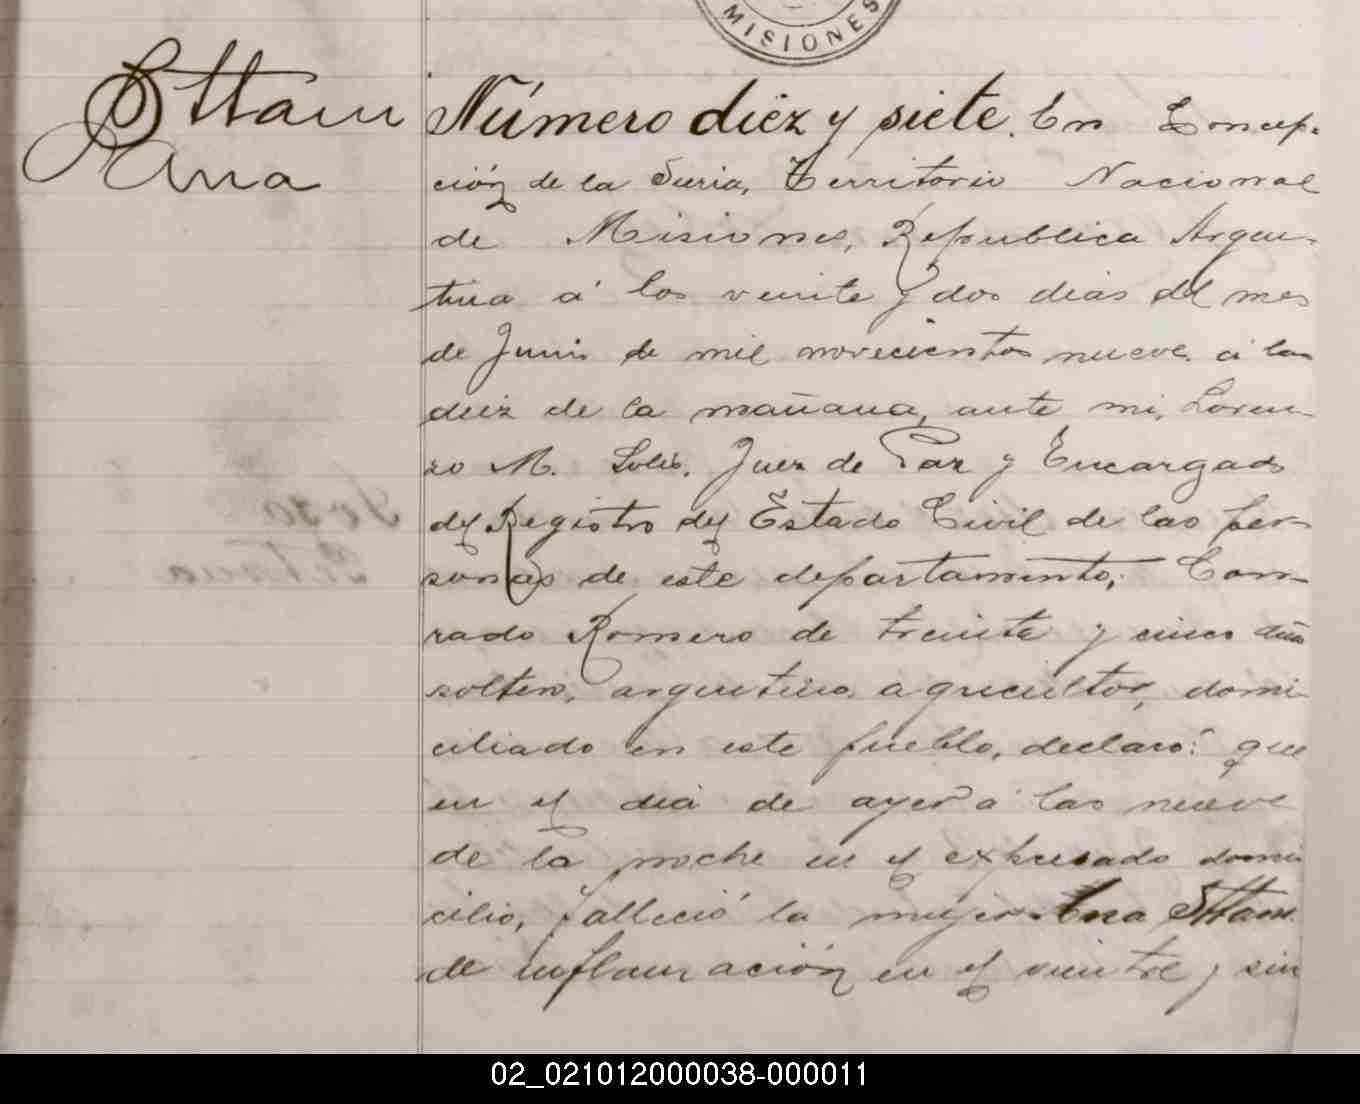 MISIONES
Ottam
Ana
Número diéz y siete. En Concep-
ción de la Sierra, Territorio Nacional
de Misiones, Republica Argen-
tina á los veinte y dos dias del mes
de Junio de mil novecientos nueve á las
diez de la mañana, ante mi, Loren-
zo M. Solis, Juez de Paz y Encargado
del Registro del Estado Civil de las per-
sonas de este departamento, Con-
rado Romero de treinta y cinco años
soltero, argentino, agricultor, domi-
ciliado en este pueblo, declaró: que
en el dia de ayer á las nueve
de la noche en el expresado domi
cilio, falleció la mujer Ana Ottam
de inflamación en el vientre y sin
02_021012000038-000011